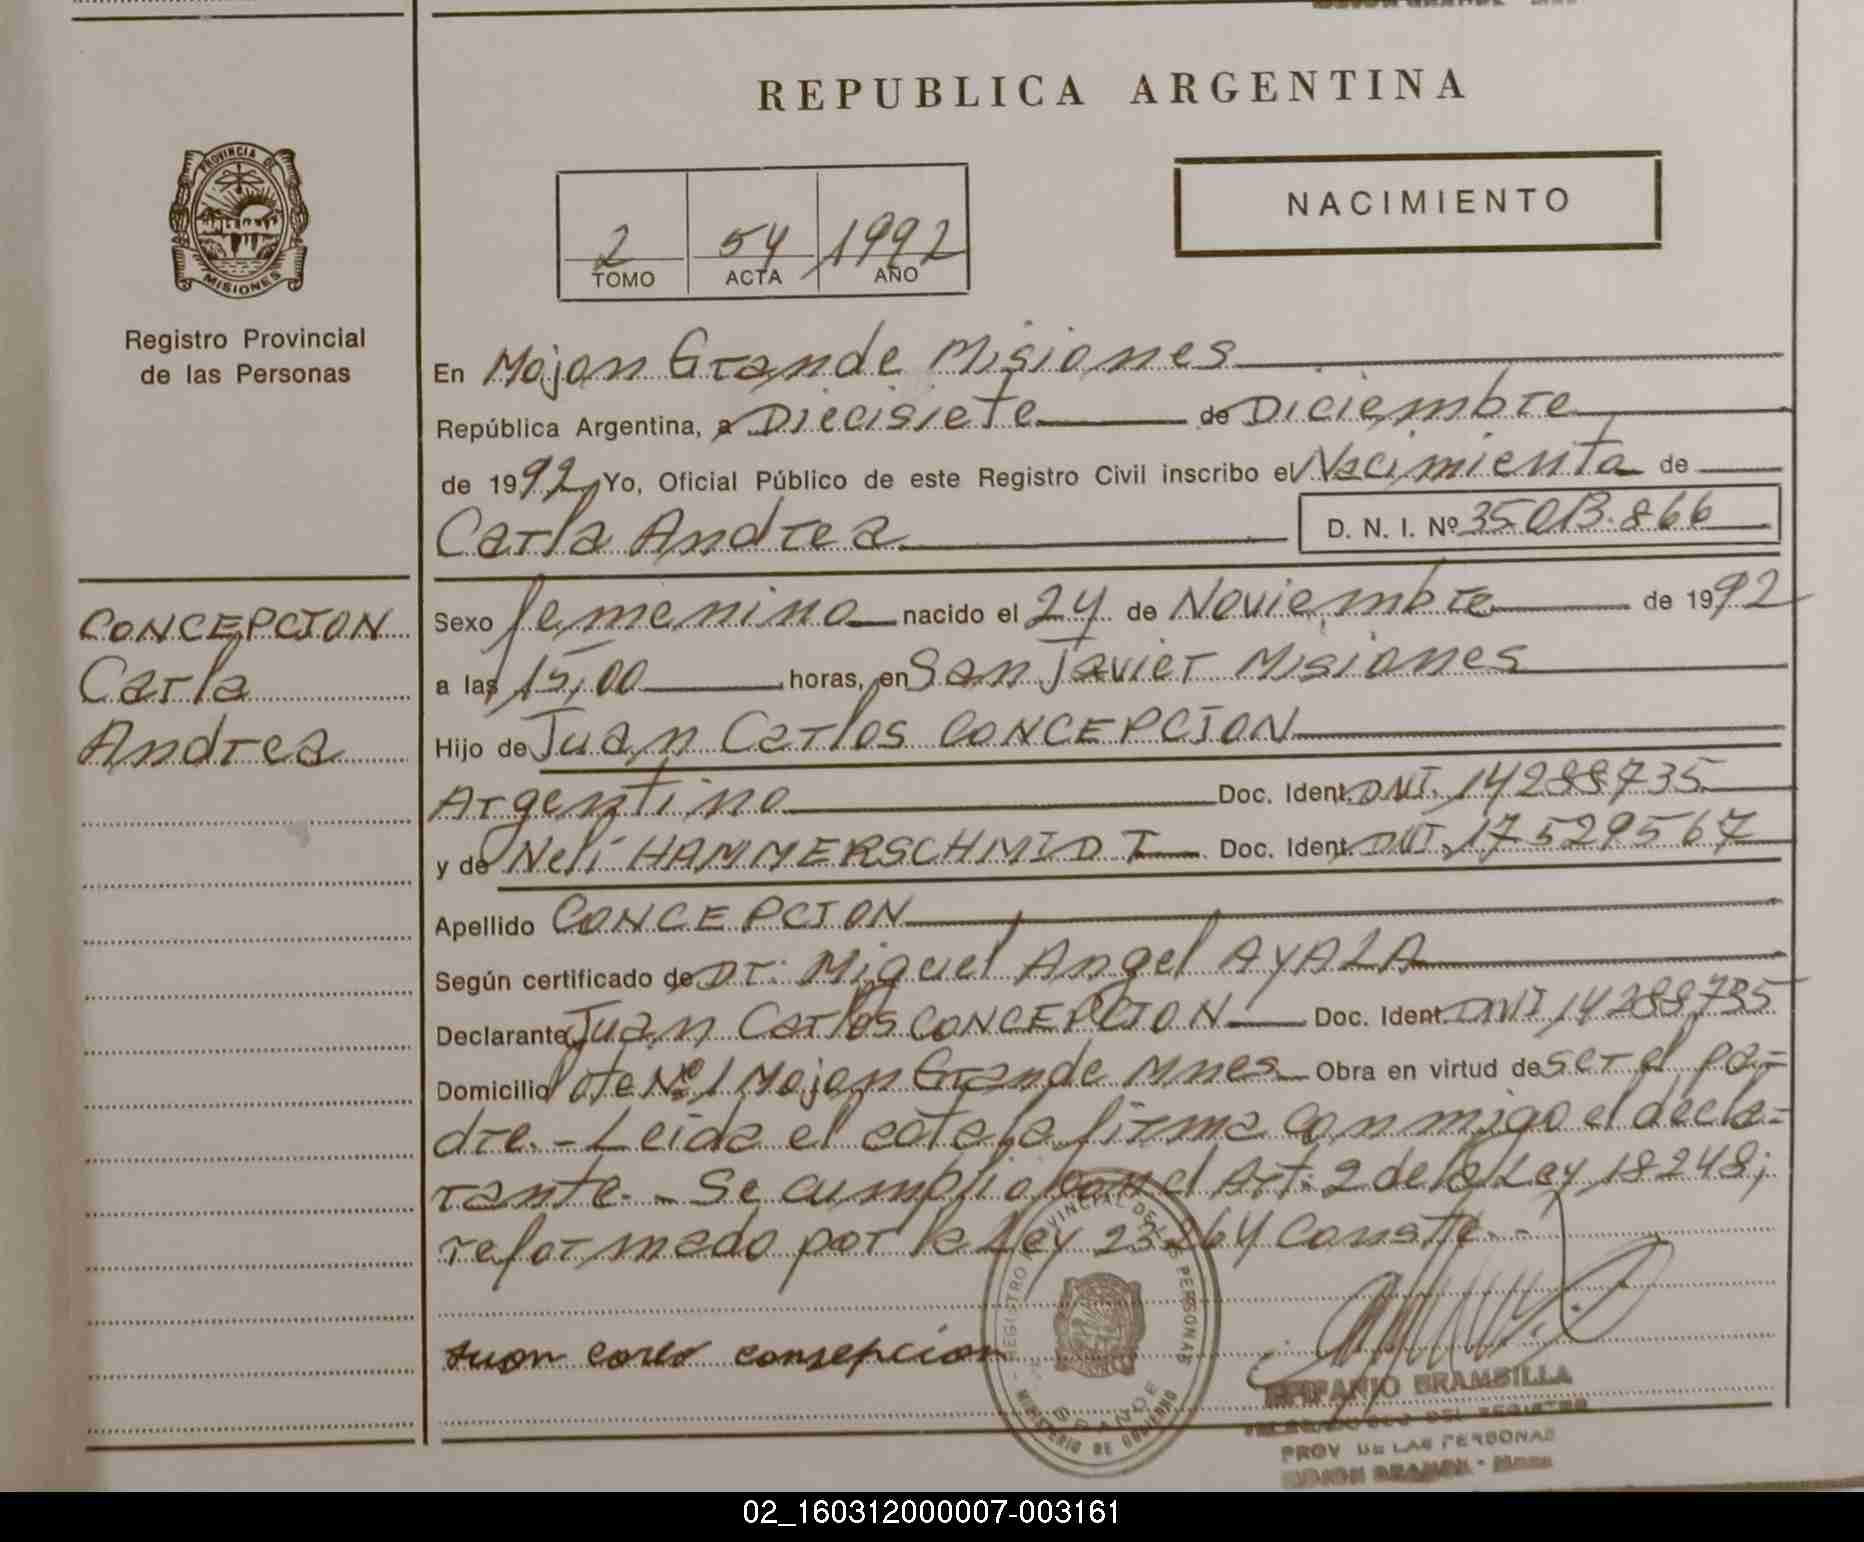 REPUBLICA ARGENTINA
PROVINCIA DE
MISIONES
Registro Provincial
de las Personas
NACIMIENTO
2 54 1992
TOMO ACTA AÑO
En Mojon Grande Misiones
República Argentina, a Diecisiete de Diciembre
de 1992 Yo, Oficial Público de este Registro Civil inscribo el Nacimiento de
Carla Andrea D. N. I. Nº 35.013.866
CONCEPCION
Carla
Andrea
Sexo femenino nacido el 24 de Noviembre de 1992
a las 15,00 horas, en San Javier Misiones
Hijo de Juan Carlos CONCEPCION
Argentino Doc. Ident. DNI. 14288735
y de Neli HAMMERSCHMIDT Doc. Ident. DNI. 17529567
Apellido CONCEPCION
Según certificado de Dr: Miguel Angel AYALA
Declarante Juan Carlos CONCEPCION Doc. Ident. DNI 14288735
Domicilio lote Nº 1 Mojon Grande Mnes Obra en virtud de ser el pa-
dre.- Leida el acta la firma conmigo el decla-
rante.- Se cumplio con el Art. 2 de la Ley 18248;
reformado por la Ley 23264 Conste.-
juan carlo consepcion
REGISTRO PROVINCIAL DE LAS PERSONAS
MINISTERIO DE GOBIERNO
GRANDE
BRAMBILLA
DEL REGISTRO
PROV DE LAS PERSONAS
MOJON GRANDE - Mnes
02_160312000007-003161